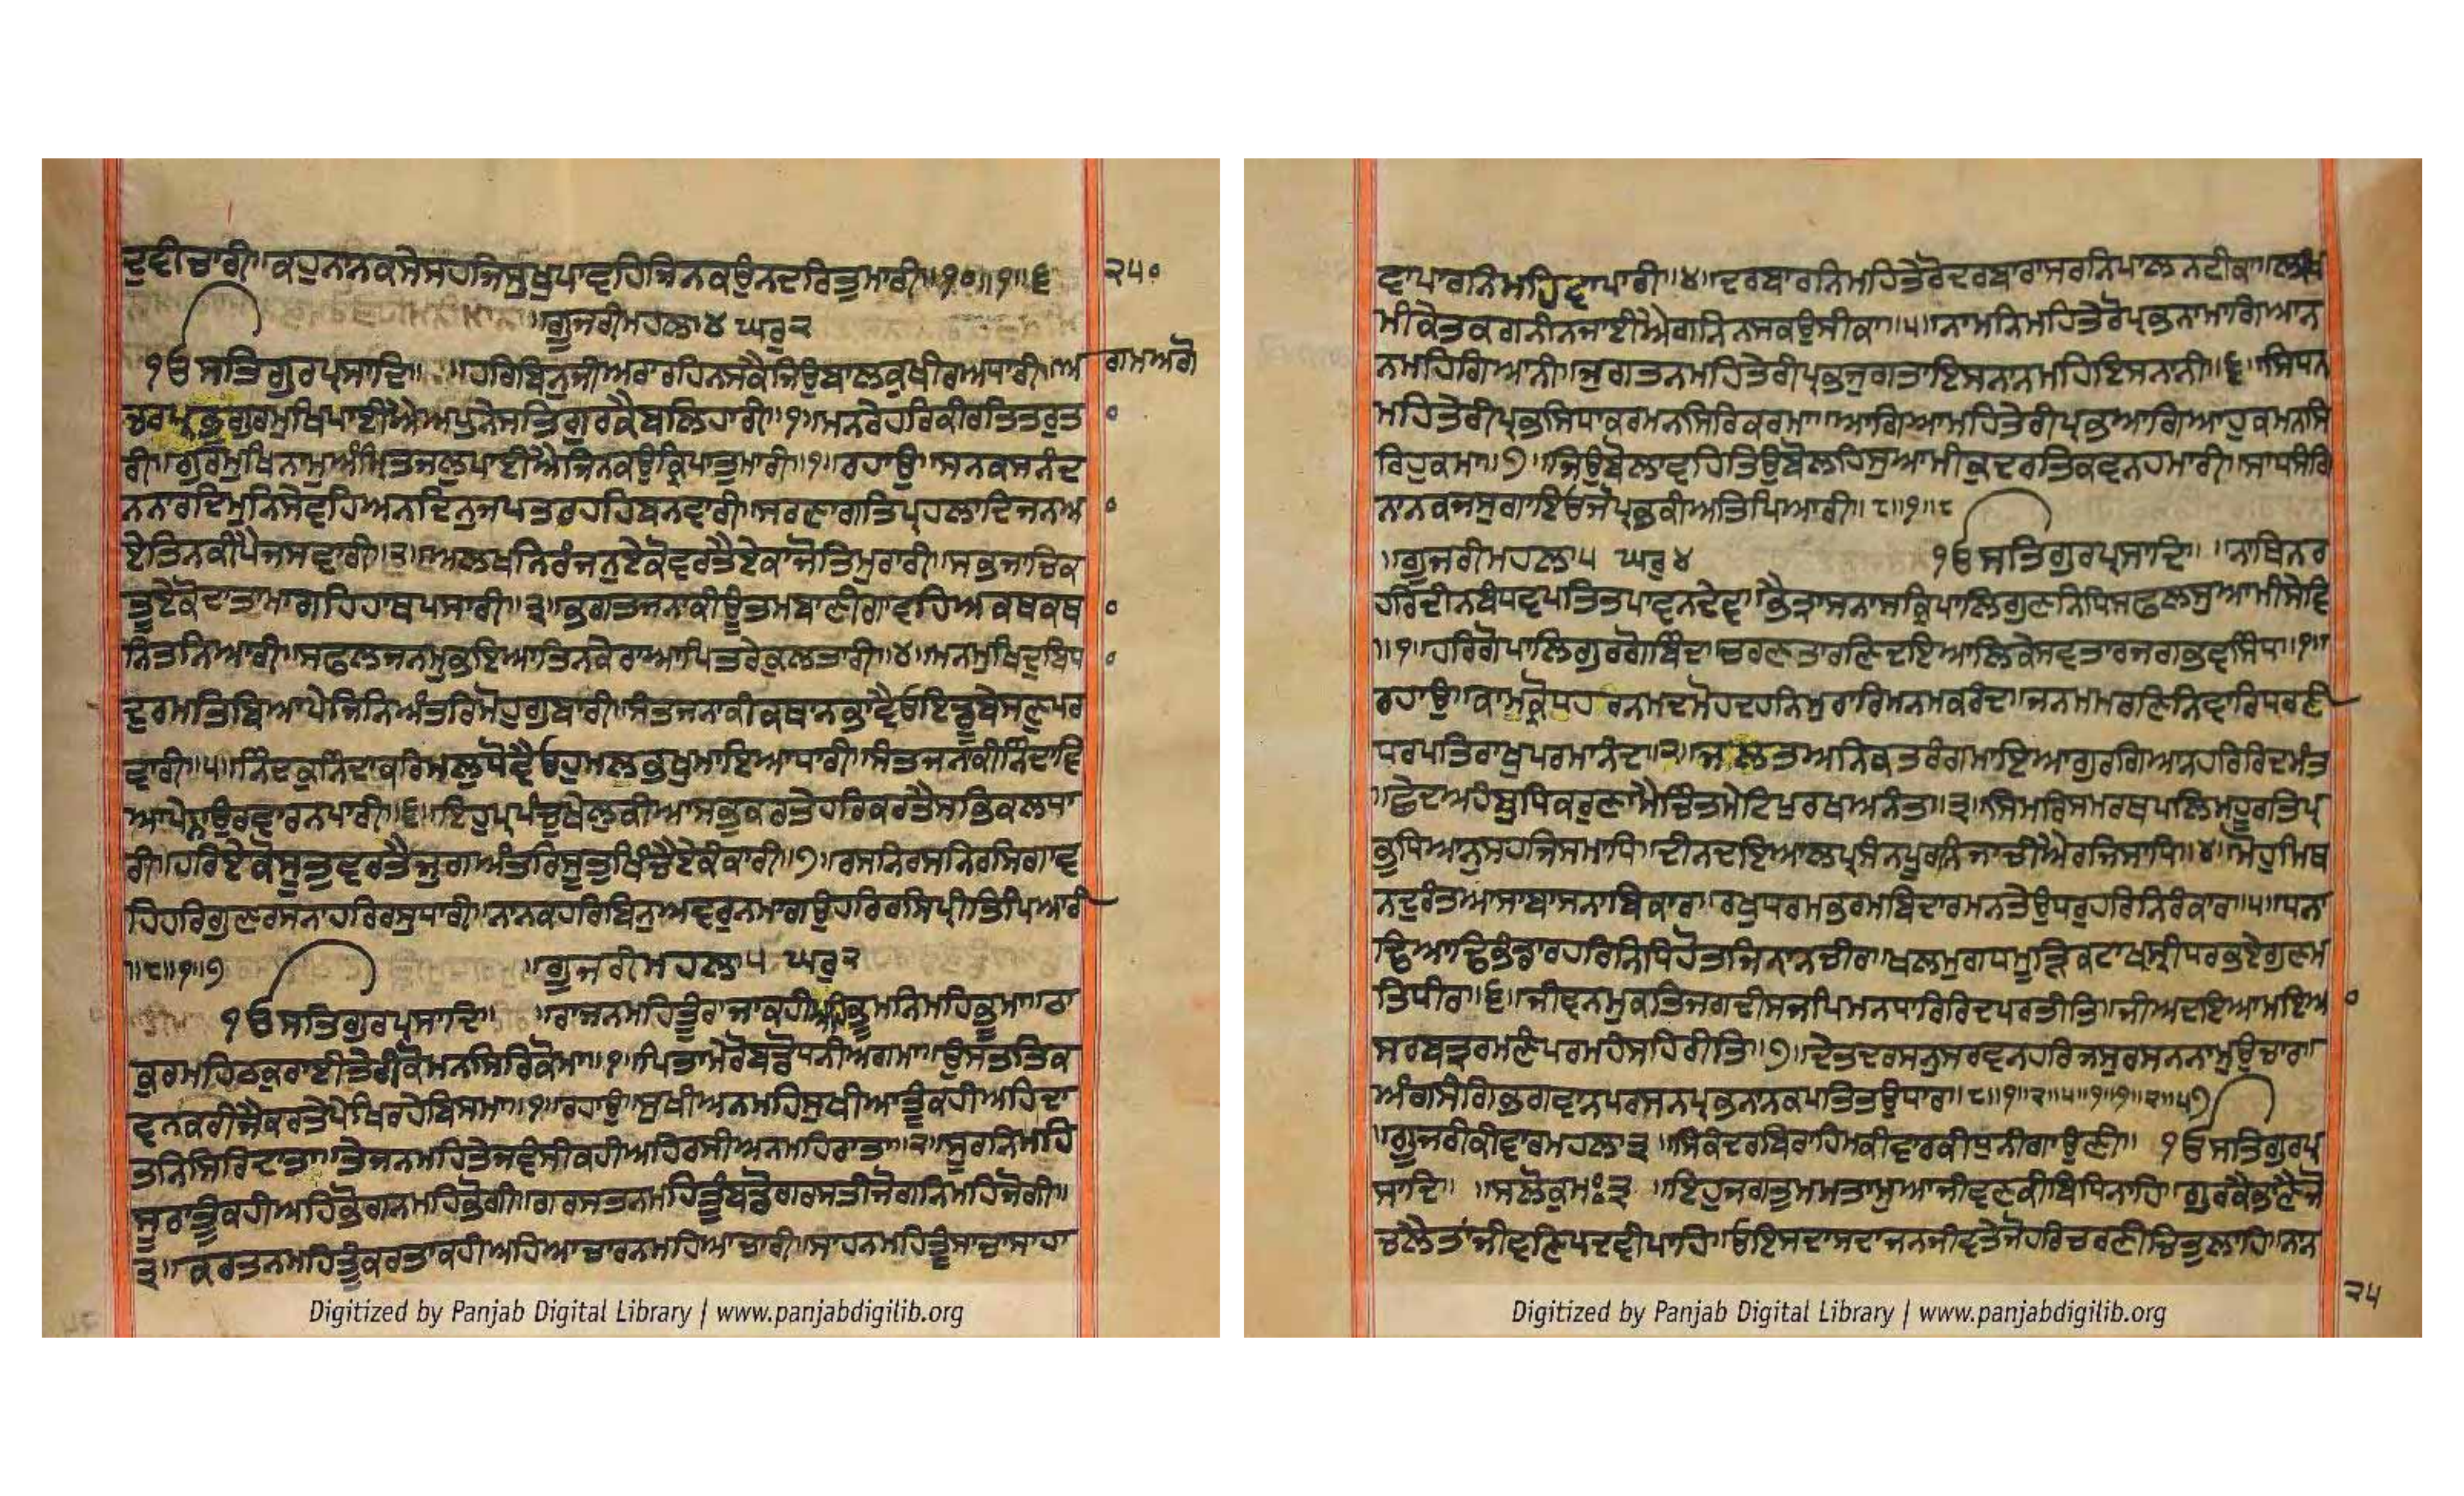 ਦੁਵੀਚਾਰੀ॥ਕਹੁਨਾਨਕਸੇਸਹਜਿਸੁਖੁਪਾਵਹਿਜਿਨਕਉਨਦਰਿਤੁਮਾਰੀ॥੧੦॥੧॥੬
੨੫੦
॥ਗੂਜਰੀਮਹਲਾ੪ ਘਰੁ੨
੧ਓਸਤਿਗੁਰਪ੍ਰਸਾਦਿ॥ ॥ਹਰਿਬਿਨੁਜੀਅਰਾਰਹਿਨਸਕੈਜਿਉਬਾਲਕੁਖੀਰਅਧਾਰੀ॥ਅ ਗਮਅਗੋ
ਚਰਪ੍ਰਭੁਗੁਰਮੁਖਿਪਾਈਐਅਪੁਨੇਸਤਿਗੁਰਕੈਬਲਿਹਾਰੀ॥੧॥ਮਨਰੇਹਰਿਕੀਰਤਿਤਰੁਤ
ਰੀ॥ਗੁਰਮੁਖਿਨਾਮੁਅੰਮ੍ਰਿਤਜਲੁਪਾਈਐਜਿਨਕਉਕ੍ਰਿਪਾਤੁਮਾਰੀ॥੧॥ਰਹਾਉ॥ਸਨਕਸਨੰਦ
ਨਨਾਰਦਿਮੁਨਿਸੇਵਹਿਅਨਦਿਨੁਜਪਤਰਹਹਿਬਨਵਾਰੀ॥ਸਰਣਾਗਤਿਪ੍ਰਹਲਾਦਿਜਨਅ
ਏਤਿਨਕੀਪੈਜਸਵਾਰੀ॥੨॥ਅਲਖਨਿਰੰਜਨੁਏਕੋਵਰਤੈਏਕਾਜੋਤਿਮੁਰਾਰੀ॥ਸਭੁਜਾਚਿਕ
ਤੂਏਕੋਦਾਤਾਮਾਗਹਿਹਾਥਪਸਾਰੀ॥੩॥ਭਗਤਜਨਾਕੀਊਤਮਬਾਣੀਗਾਵਹਿਅਕਥਕਥ
ਨਿਤਨਿਆਰੀ॥ਸਫਲਜਨਮੁਭਇਆਤਿਨਕੇਰਾਆਪਿਤਰੇਕੁਲਤਾਰੀ॥੪॥ਮਨਮੁਖਿਦੁਬਿਧ
ਦੁਰਮਤਿਬਿਆਪੇਜਿਨਿਅੰਤਰਿਮੋਹੁਗੁਬਾਰੀ॥ਸੰਤਜਨਾਕੀਕਥਾਨਭਾਵੈਓਇਡੂਬੇਸਣੁਪਰ
ਵਾਰੀ॥੫॥ਨਿੰਦਕੁਨਿੰਦਾਕਰਿਮਲੁਧੋਵੈਓਹੁਮਲਭਖੁਮਾਇਆਧਾਰੀ॥ਸੰਤਜਨਕੀਨਿੰਦਾਵਿ
ਆਪੇਨਾਉਰਵਾਰਨਪਾਰੀ॥੬॥ਇਹੁਪ੍ਰਪੰਚੁਖੇਲੁਕੀਆਸਭੁਕਰਤੇਹਰਿਕਰਤੈਸਭਿਕਲਧਾ
ਰੀ॥ਹਰਿਏਕੋਸੂਤੁਵਰਤੈਜੁਗਅੰਤਰਿਸੂਤੁਖਿੰਚੈਏਕੰਕਾਰੀ॥੭॥ਰਸਨਿਰਸਨਿਰਸਿਗਾਵ
ਹਿਹਰਿਗੁਣਰਸਨਾਹਰਿਰਸੁਧਾਰੀ॥ਨਾਨਕਹਰਿਬਿਨੁਅਵਰੁਨਮਾਗਉਹਰਿਰਸਿਪ੍ਰੀਤਿਪਿਆਰੀ
॥੮॥੧॥੭ ॥ਗੂਜਰੀਮਹਲਾ੫ ਘਰੁ੨
੧ਓਸਤਿਗੁਰਪ੍ਰਸਾਦਿ॥ ॥ਰਾਜਨਮਹਿਤੂੰਰਾਜਾਕਹੀਅਹਿਭੂਮਨਿਮਹਿਭੂਮਾ॥ਠਾ
ਕੁਰਮਹਿਠਕੁਰਾਈਤੇਰੀਕੋਮਨਸਿਰਿਕੋਮਾ॥੧॥ਪਿਤਾਮੇਰੋਬਡੋਧਨੀਅਗਮਾ॥ਉਸਤਤਿਕ
ਵਨਕਰੀਜੈਕਰਤੇਪੇਖਿਰਹੇਬਿਸਮਾ॥੧॥ਰਹਾਉ॥ਸੁਖੀਅਨਮਹਿਸੁਖੀਆਤੂੰਕਹੀਅਹਿਦਾ
ਤਨਿਸਿਰਿਦਾਤਾ॥ਤੇਜਨਮਹਿਤੇਜਵੰਸੀਕਹੀਅਹਿਰਸੀਅਨਮਹਿਰਾਤਾ॥੨॥ਸੂਰਨਿਮਹਿ
ਸੂਰਾਤੂੰਕਹੀਅਹਿਭੋਗਨਮਹਿਭੋਗੀ॥ਗਰਸਤਨਮਹਿਤੂੰਬਡੋਗਰਸਤੀਜੋਗਨਿਮਹਿਜੋਗੀ॥
੩॥ਕਰਤਨਮਹਿਤੂੰਕਰਤਾਕਹੀਅਹਿਆਚਾਰਨਮਹਿਆਚਾਰੀ॥ਸਾਹਨਮਹਿਤੂੰਸਾਚਾਸਾਹਾ
Digitized by Panjab Digital Library | www.panjabdigilib.org
ਵਾਪਾਰਨਿਮਹਿਵਾਪਾਰੀ॥੪॥ਦਰਬਾਰਨਿਮਹਿਤੇਰੋਦਰਬਾਰਾਸਰਨਿਪਾਲਨਟੀਕਾ॥ਲਖਿ
ਮੀਕੇਤਕਗਨੀਨਜਾਈਐਗਨਿਨਸਕਉਸੀਕਾ॥੫॥ਨਾਮਨਿਮਹਿਤੇਰੋਪ੍ਰਭਨਾਮਾਗਿਆਨ
ਨਮਹਿਗਿਆਨੀ॥ਜੁਗਤਨਮਹਿਤੇਰੀਪ੍ਰਭਜੁਗਤਾਇਸਨਾਨਮਹਿਇਸਨਾਨੀ॥੬॥ਸਿਧਨ
ਮਹਿਤੇਰੀਪ੍ਰਭਸਿਧਾਕਰਮਨਸਿਰਿਕਰਮਾ॥ਆਗਿਆਮਹਿਤੇਰੀਪ੍ਰਭਆਗਿਆਹੁਕਮਨਸਿ
ਰਿਹੁਕਮਾ॥੭॥ਜਿਉਬੋਲਾਵਹਿਤਿਉਬੋਲਹਿਸੁਆਮੀਕੁਦਰਤਿਕਵਨਹਮਾਰੀ॥ਸਾਧਸੰਗਿ
ਨਾਨਕਜਸੁਗਾਇਓਜੋਪ੍ਰਭਕੀਅਤਿਪਿਆਰੀ॥੮॥੧॥੮
॥ਗੂਜਰੀਮਹਲਾ੫ ਘਰੁ੪ ੧ਓਸਤਿਗੁਰਪ੍ਰਸਾਦਿ॥ ॥ਨਾਥਨਰ
ਹਰਿਦੀਨਬੰਧਵਪਤਿਤਪਾਵਨਦੇਵ॥ਭੈਤ੍ਰਾਸਨਾਸਕ੍ਰਿਪਾਲਿਗੁਣਨਿਧਿਸਫਲਸੁਆਮੀਸੇਵ
॥੧॥ਹਰਿਗੋਪਾਲਿਗੁਰਗੋਬਿੰਦ॥ਚਰਣਤਾਰਣਿਦਇਆਲਿਕੇਸਵਤਾਰਜਗਭਵਸਿੰਧ॥੧॥
ਰਹਾਉ॥ਕਾਮਕ੍ਰੋਧਹਰਨਮਦਮੋਹਦਹਨਿਮੁਰਾਰਿਮਨਮਕਰੰਦ॥ਜਨਮਮਰਣਿਨਿਵਾਰਿਧਰਣੀ
ਧਰਪਤਿਰਾਖੁਪਰਮਾਨੰਦ॥੨॥ਜਲਤਅਨਿਕਤਰੰਗਮਾਇਆਗੁਰਗਿਆਨਹਰਿਰਿਦਮੰਤ
॥ਛੇਦਅਹੰਬੁਧਿਕਰੁਣਾਮੈਚਿੰਤਮੇਟਿਪੁਰਖਅਨੰਤ॥੩॥ਸਿਮਰਿਸਮਰਥਪਲਿਮਹੂਰਤਿਪ੍ਰ
ਭਧਿਆਨੁਸਹਜਿਸਮਾਧਿ॥ਦੀਨਦਇਆਲਪ੍ਰਸੰਨਪੂਰਨਿਜਾਚੀਐਰਜਿਸਾਧਿ॥੪॥ਮੋਹੁਮਿਥ
ਨਦੁਰੰਤਆਸਾਬਾਸਨਾਬਿਕਾਰ॥ਰਖੁਧਰਮਭਰਮਬਿਦਾਰਮਨਤੇਉਧਰੁਹਰਿਨਿਰੰਕਾਰ॥੫॥ਧਨਾ
ਢਿਆਢਿਭੰਡਾਰਹਰਿਨਿਧਿਹੋਤਜਿਨਾਨਚੀਰ॥ਖਲਮੁਗਧਮੂੜਿਕਟਾਖ੍ਯਸ੍ਰੀਧਰਭਏਗੁਣਮ
ਤਿਧੀਰ॥੬॥ਜੀਵਨਮੁਕਤਿਜਗਦੀਸਜਪਿਮਨਧਾਰਿਰਿਦਪਰਤੀਤਿ॥ਜੀਅਦਇਆਮਇਆ
ਸਰਬਤ੍ਰਰਮਣੰਪਰਮਹੰਸਹਿਰੀਤਿ॥੭॥ਦੇਤਦਰਸਨੁਸਰਵਨਹਰਿਜਸੁਰਸਨਨਾਮੁਉਚਾਰ॥
ਅੰਗਸੰਗਿਭਗਵਾਨਪਰਸਨਪ੍ਰਭਨਾਨਕਪਤਿਤਉਧਾਰ॥੮॥੧॥੨॥੫॥੧॥੧॥੨॥੫੭
॥ਗੂਜਰੀਕੀਵਾਰਮਹਲਾ੩ ॥ਸਿਕੰਦਰਬਿਰਾਹਿਮਕੀਵਾਰਕੀਧੁਨੀਗਾਉਣੀ॥ ੧ਓਸਤਿਗੁਰਪ੍ਰ
ਸਾਦਿ॥ ॥ਸਲੋਕੁਮਃ੩ ॥ਇਹੁਜਗਤੁਮਮਤਾਮੁਆਜੀਵਣਕੀਬਿਧਿਨਾਹਿ॥ਗੁਰਕੈਭਾਣੈਜੋ
ਚਲੈਤਾਂਜੀਵਣਿਪਦਵੀਪਾਹਿ॥ਓਇਸਦਾਸਦਾਜਨਜੀਵਤੇਜੋਹਰਿਚਰਣੀਚਿਤੁਲਾਹਿ॥ਨਾਨ
੨੫
Digitized by Panjab Digital Library | www.panjabdigilib.org